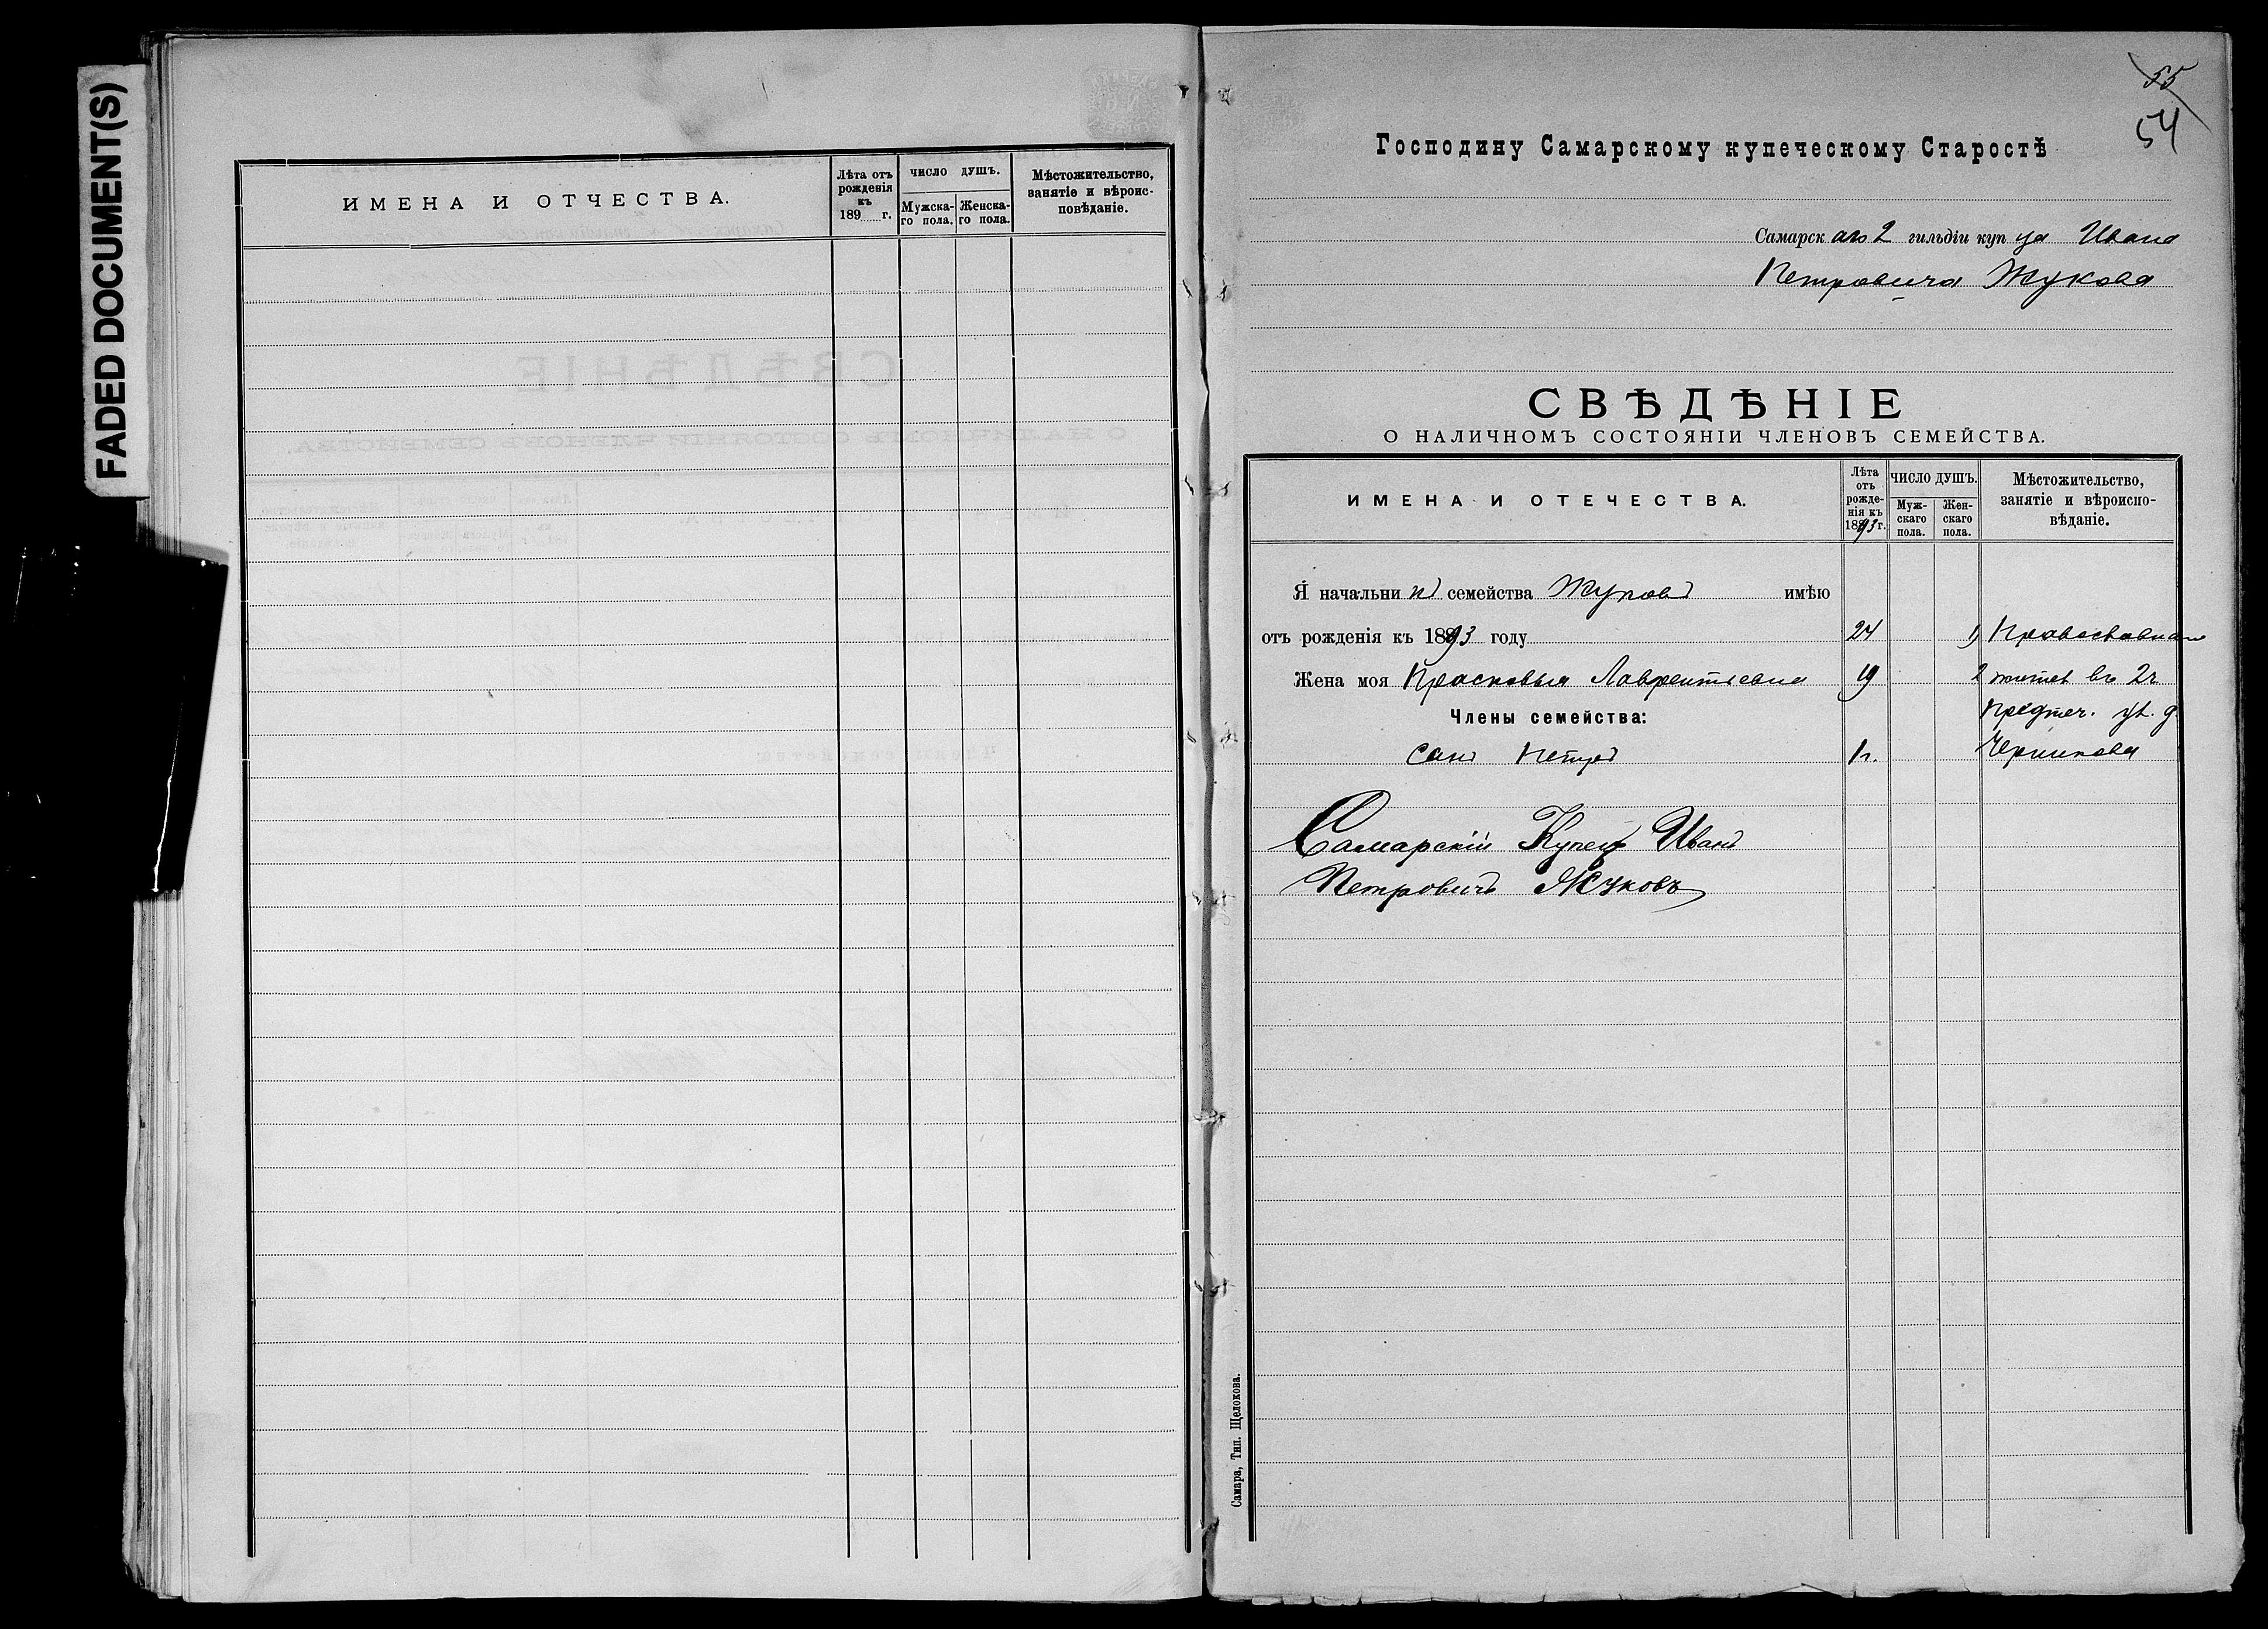 FADED DOCUMENT(S)
ИМЕНА И ОТЧЕСТВА.
Лѣта отъ рожденія къ 189 г.
ЧИСЛО ДУШЪ.
Мужска-го пола.
Женска-го пола.
Мѣстожительство, занятіе и вѣроис-повѣданіе.
55
54
Господину Самарскому купеческому Старостѣ
Самарскаго 2 гильдіи купца Ивана
Петровича Жукова
СВѢДѢНІЕ
О НАЛИЧНОМЪ СОСТОЯНІИ ЧЛЕНОВЪ СЕМЕЙСТВА.
ИМЕНА И ОТЕЧЕСТВА.
Лѣта отъ рожде-нія къ 1893 г.
ЧИСЛО ДУШЪ.
Муж-скаго пола.
Жен-скаго пола.
Мѣстожительство, занятіе и вѣроиспо-вѣданіе.
Я начальникъ семейства Жуковъ имѣю
отъ рожденія къ 1893 году 24 1) Православнаго
Жена моя Прасковья Лаврентьевна 19 2 житет въ 2ч.
Члены семейства: Предтеч. ул. д.
Сынъ Петръ 1г. Черникова
Самарскій Купецъ Иванъ
Петровичъ Жуковъ
Самара, Тип. Щелокова.